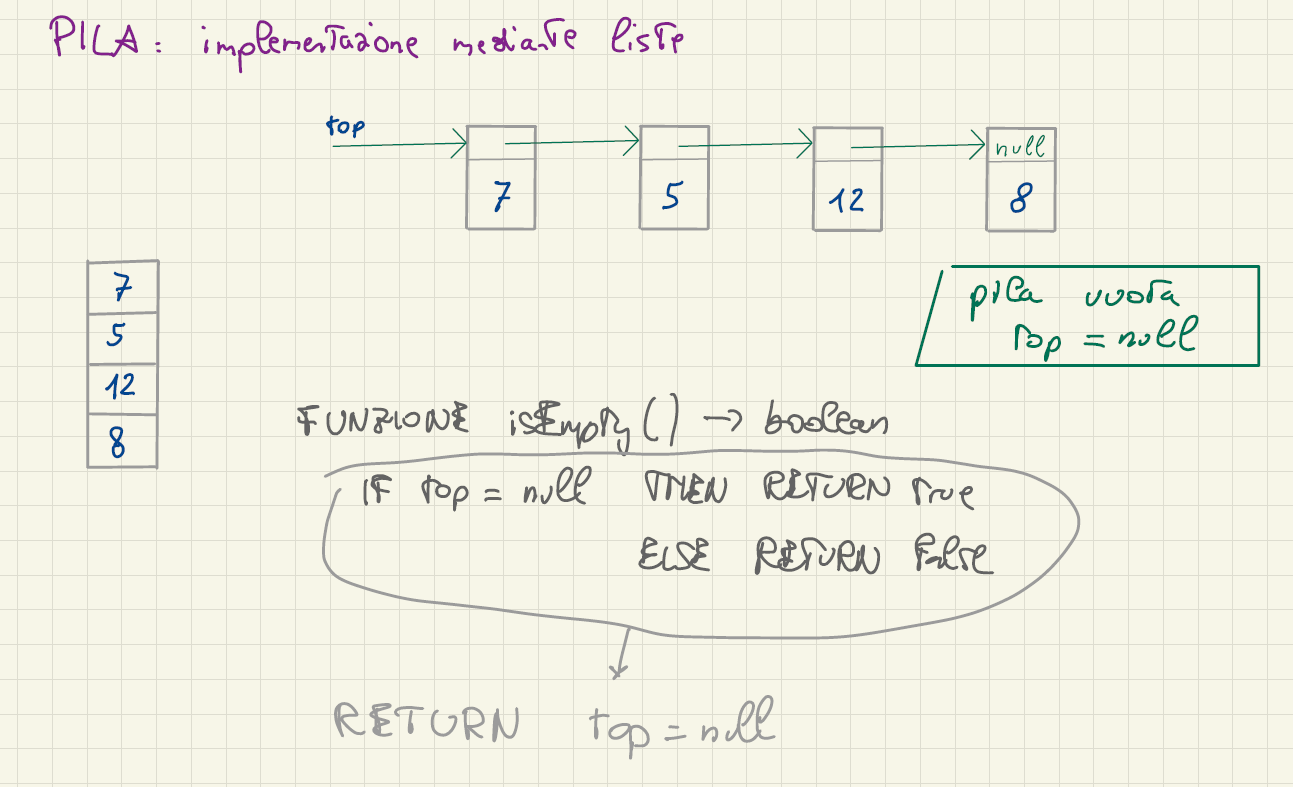 PILA: implementazione mediante liste
top
null
7 5 12 8
7
5
12
8
pila vuota
top = null
FUNZIONE isEmpty() → boolean
IF top = null THEN RETURN true
ELSE RETURN false
RETURN top = null